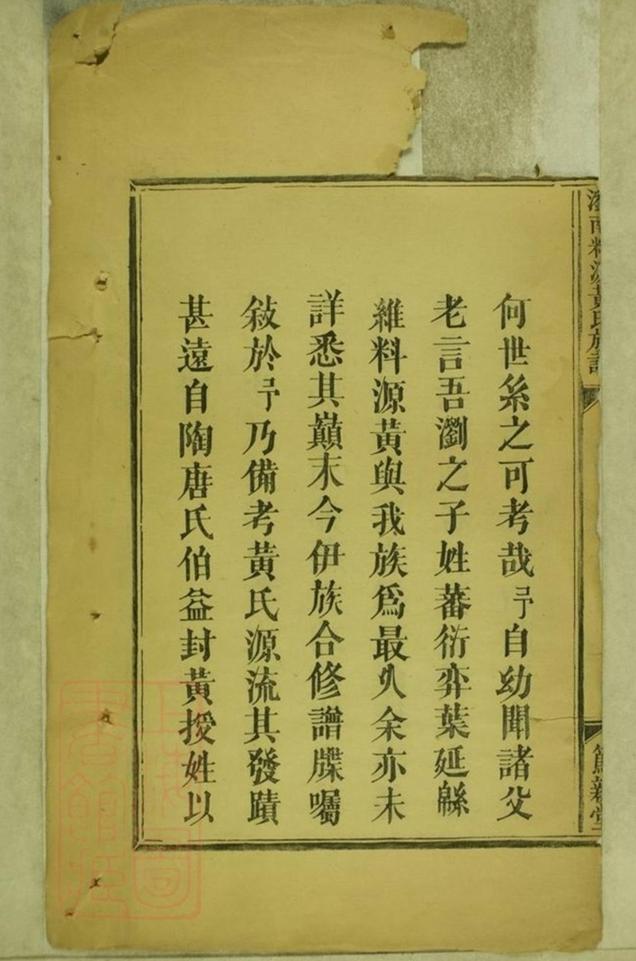 瀏南料源黃氏族譜
何世系之可考哉予自幼聞諸父
老言吾瀏之子姓蕃衍弈葉延緜
維料源黃與我族爲最久余亦未
詳悉其巔末今伊族合修譜牒囑
敍於予乃備考黃氏源流其發蹟
甚遠自陶唐氏伯益封黃授姓以